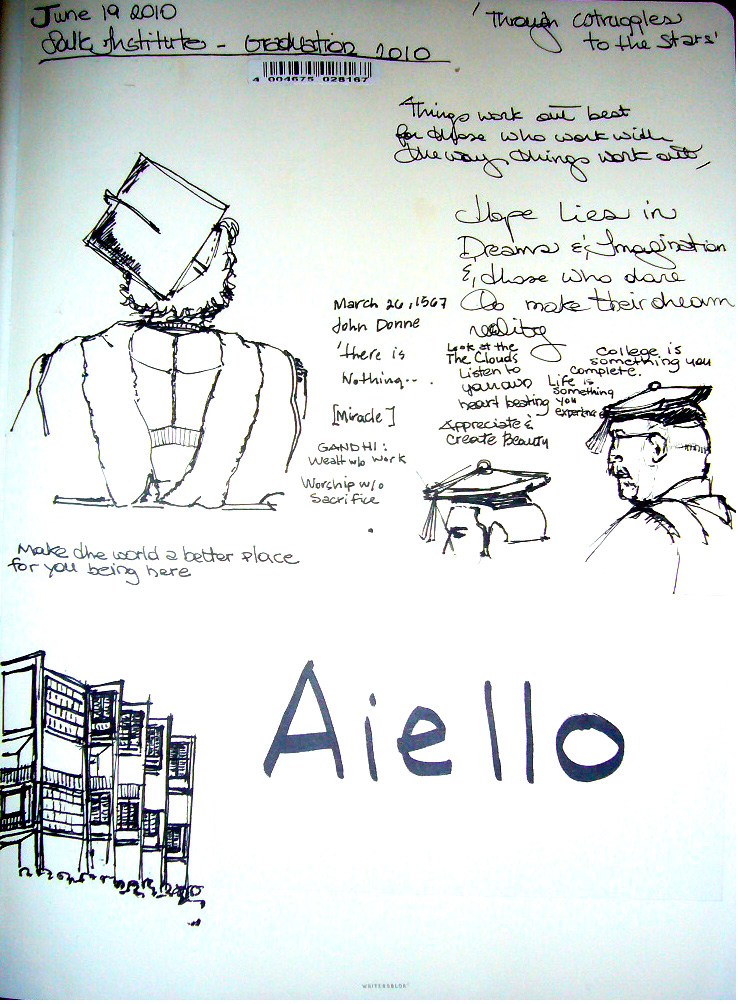 June 19 2010
Salk Institute - Graduation 2010
'Through struggles
to the stars'
4 004675 028167
Things work out best
for those who work with
the way things work out
Hope Lies in
Dreams & Imagination
& those who dare
to make their dream
reality
March 26, 1567
John Donne
'there is
Nothing--.
[Miracle]
GANDHI:
Wealth w/o work
Worship w/o
Sacrifice
Look at the
The Clouds
Listen to
your own
heart beating
Appreciate &
Create Beauty
College is
something you
complete.
Life is
something
you
experience
Make the world a better place
for you being here
Aiello
WRITERSBLOK